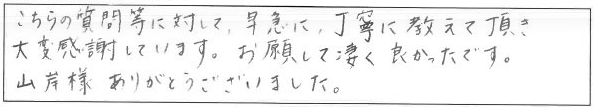 こちらの質問等に対して、早急に、丁寧に教えて頂き
大変感謝しています。お願して凄く良かったです。
山岸様 ありがとうございました。